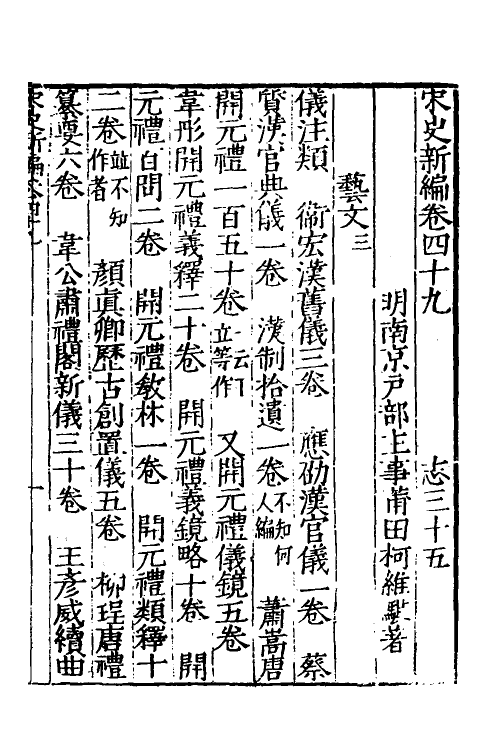 宋史新編卷四十九　志三十五
明南京戶部主事莆田柯維騏著
藝文三
儀注類　衞宏漢舊儀三卷　應劭漢官儀一卷　蔡
質漢官典儀一卷　漢制拾遺一卷不知何人編　蕭嵩唐
開元禮一百五十卷一云王立等作　又開元禮儀鏡五卷
韋彤開元禮義釋二十卷　開元禮義鏡略十卷　開
元禮百問二卷　開元禮敎林一卷　開元禮類釋十
二卷並不知作者　顏眞卿歷古創置儀五卷　柳珵唐禮
纂要六卷　韋公肅禮閣新儀三十卷　王彥威續曲
宋史新編卷四十九　一